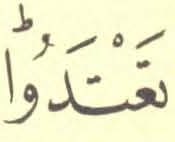 تَعْتَدُواؕ